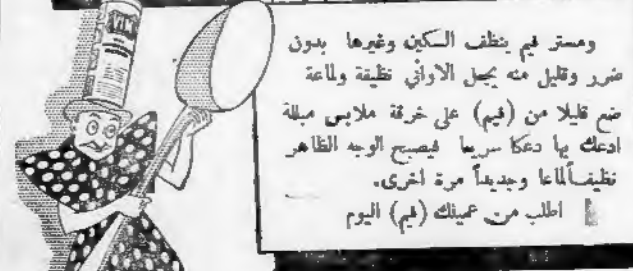 VIM
ومستر فيم ينظف السكين وغيرها بدون
ضرر وقليل منه يجعل الاواني نظيفة ولماعة
ضع قليلا من (فيم) على خرقة ملابس مبللة
ادعك بها دعكا سريعا فيصبح الوجه الظاهر
نظيفاً لماعا وجديداً مرة اخرى.
اطلب من عميلك (فيم) اليوم